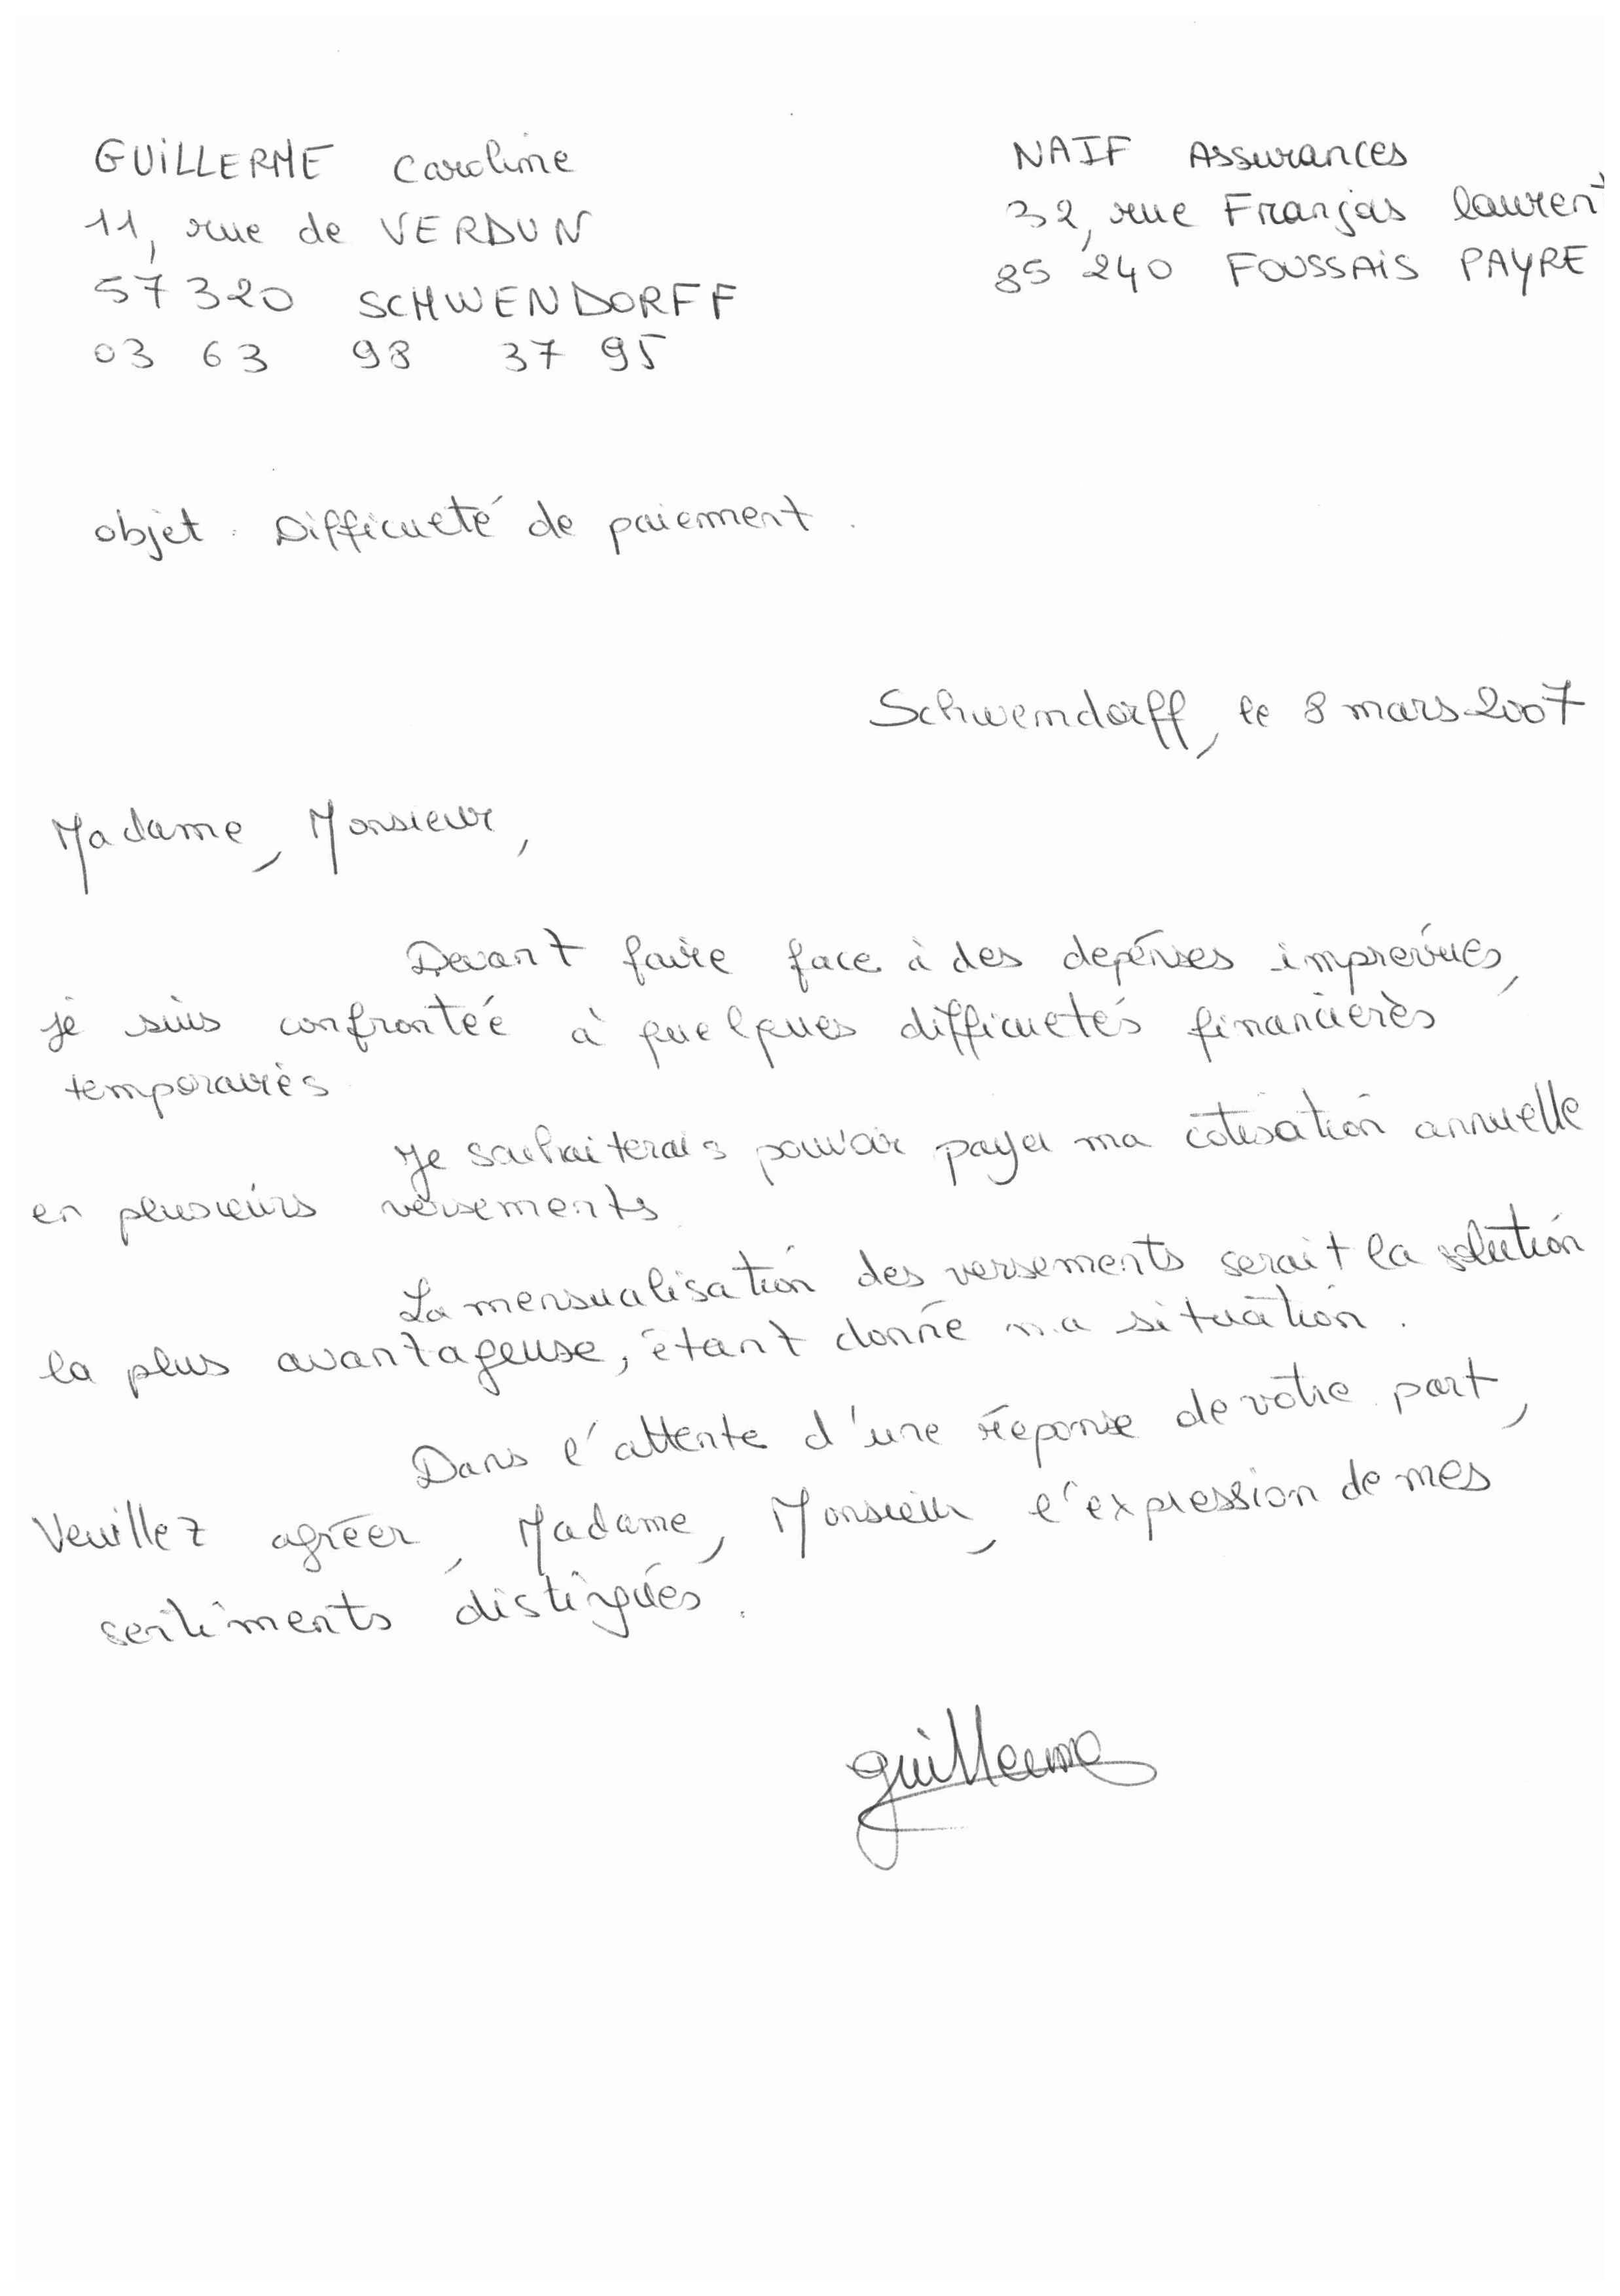 GUILLERME Caroline
11, rue de VERDUN
57320 SCHWENDORFF
03 63 98 37 95
NAIF Assurances
32, rue Françis laurent
85 240 FOUSSAIS PAYRE
objet : Difficulté de paiement.
Schwendorff, le 8 mars 2007
Madame, Monsieur,
Devant faire face à des dépenses imprévues,
je suis confrontée à quelques difficultés financières
temporaires.
Je souhaiterais pouvoir payer ma cotisation annuelle
en plusieurs versements.
La mensualisation des versements serait la solution
la plus avantageuse, étant donné ma situation.
Dans l'attente d'une réponse de votre part,
Veuillez agréer, Madame, Monsieur, l'expression de mes
sentiments distingués.
guillerme